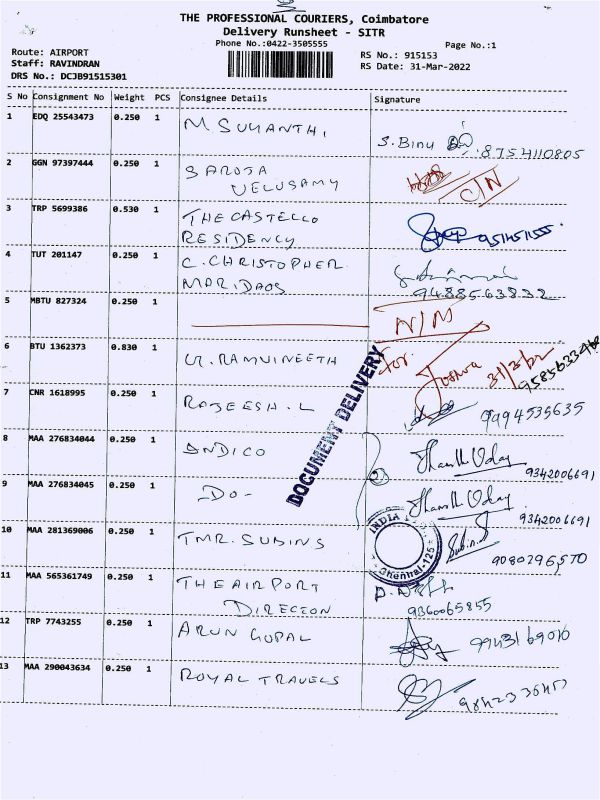 THE PROFESSIONAL COURIERS, Coimbatore
Delivery Runsheet - SITR
Phone No.:0422-3505555
Page No.:1
Route: AIRPORT
Staff: RAVINDRAN
DRS No.: DCJB91515301
RS No.: 915153
RS Date: 31-Mar-2022
S No Consignment No Weight PCS Consignee Details Signature
1 EDQ 25543473 0.250 1 M SUMANTHI, S. Binu 8754110805
2 GGN 97397444 0.250 1 SAROJA C/N
VELUSAMY
3 TRP 5699386 0.530 1 THE CASTELLO
RESIDENCY
4 TUT 201147 0.250 1 C. CHRISTOPHER
MARIDAOS 9488563832
5 MBTU 827324 0.250 1 N/M
6 BTU 1362373 0.830 1 RAMVINEETH for Joshva 31/3/22
DOCUMENT DELIVERY
7 CNR 1618995 0.250 1 RAJEESH. L 9994535635
8 MAA 276834044 0.250 1 INDICO 9342006691
9 MAA 276834045 0.250 1 -DO- 9342006691
INDIA
Chennai-125
10 MAA 281369006 0.250 1 TMR. SUBINS Subin.S 9080296570
11 MAA 565361749 0.250 1 THE AIRPORT
DIRECTON 9360065855
12 TRP 7743255 0.250 1 ARUN GOPAL 9943169010
13 MAA 290043634 0.250 1 ROYAL TRAVELS